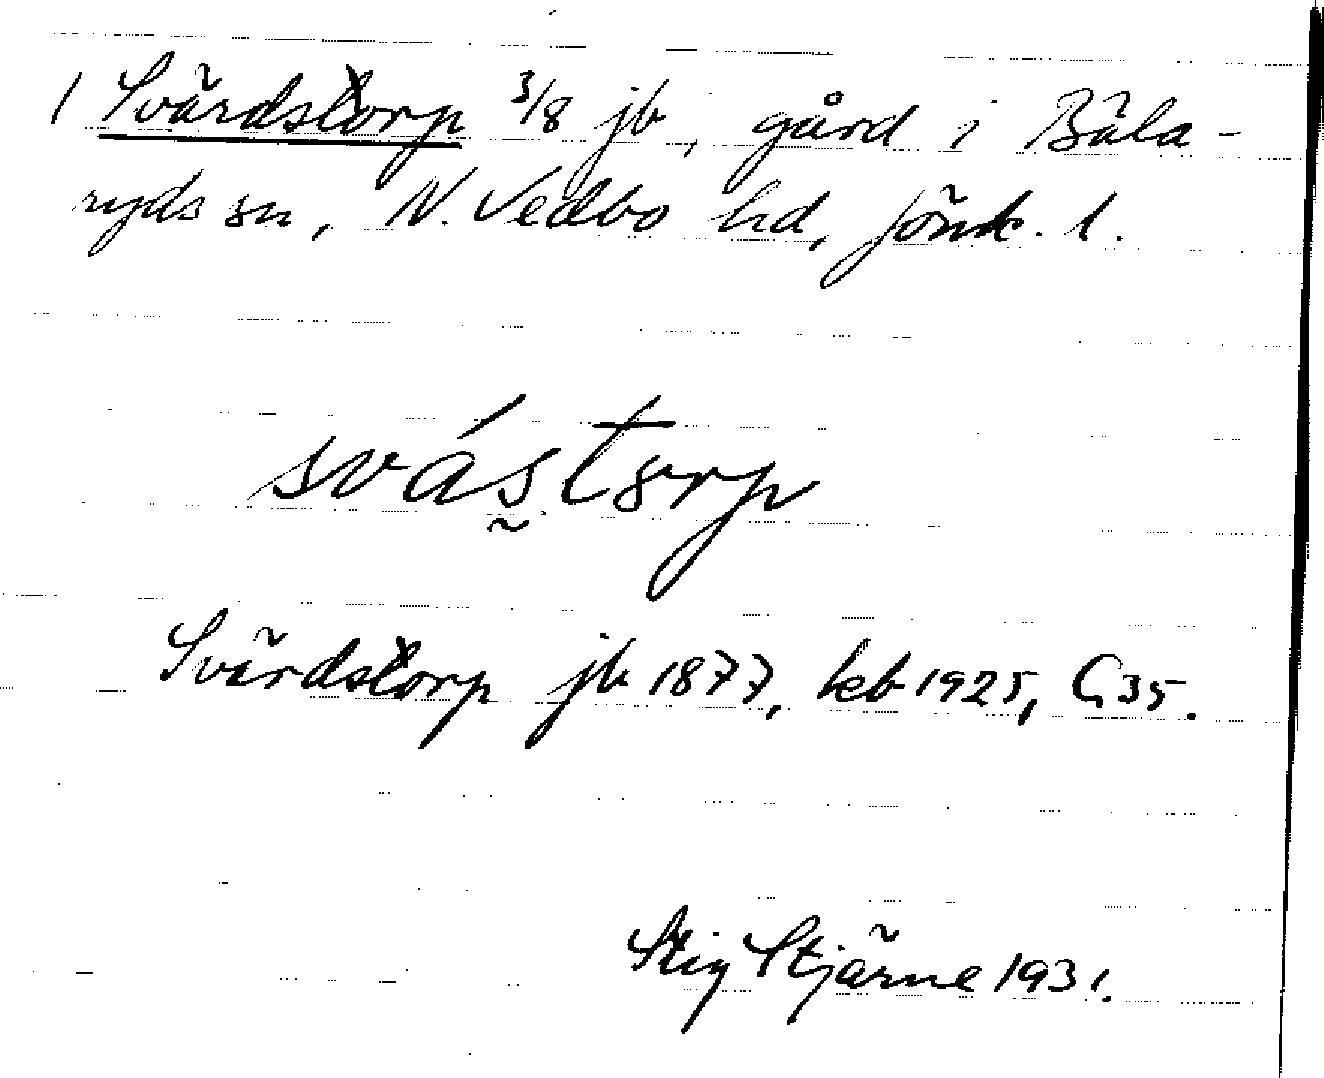 1 Svärdstorp 3/8 jb, gård i Bäla-
ryds sn, N. Vedbo hd, Jönk. l.
svás̰torp
Svärdstorp jb 1877, keb 1925, G 35.
Stig Stjärne 1931.